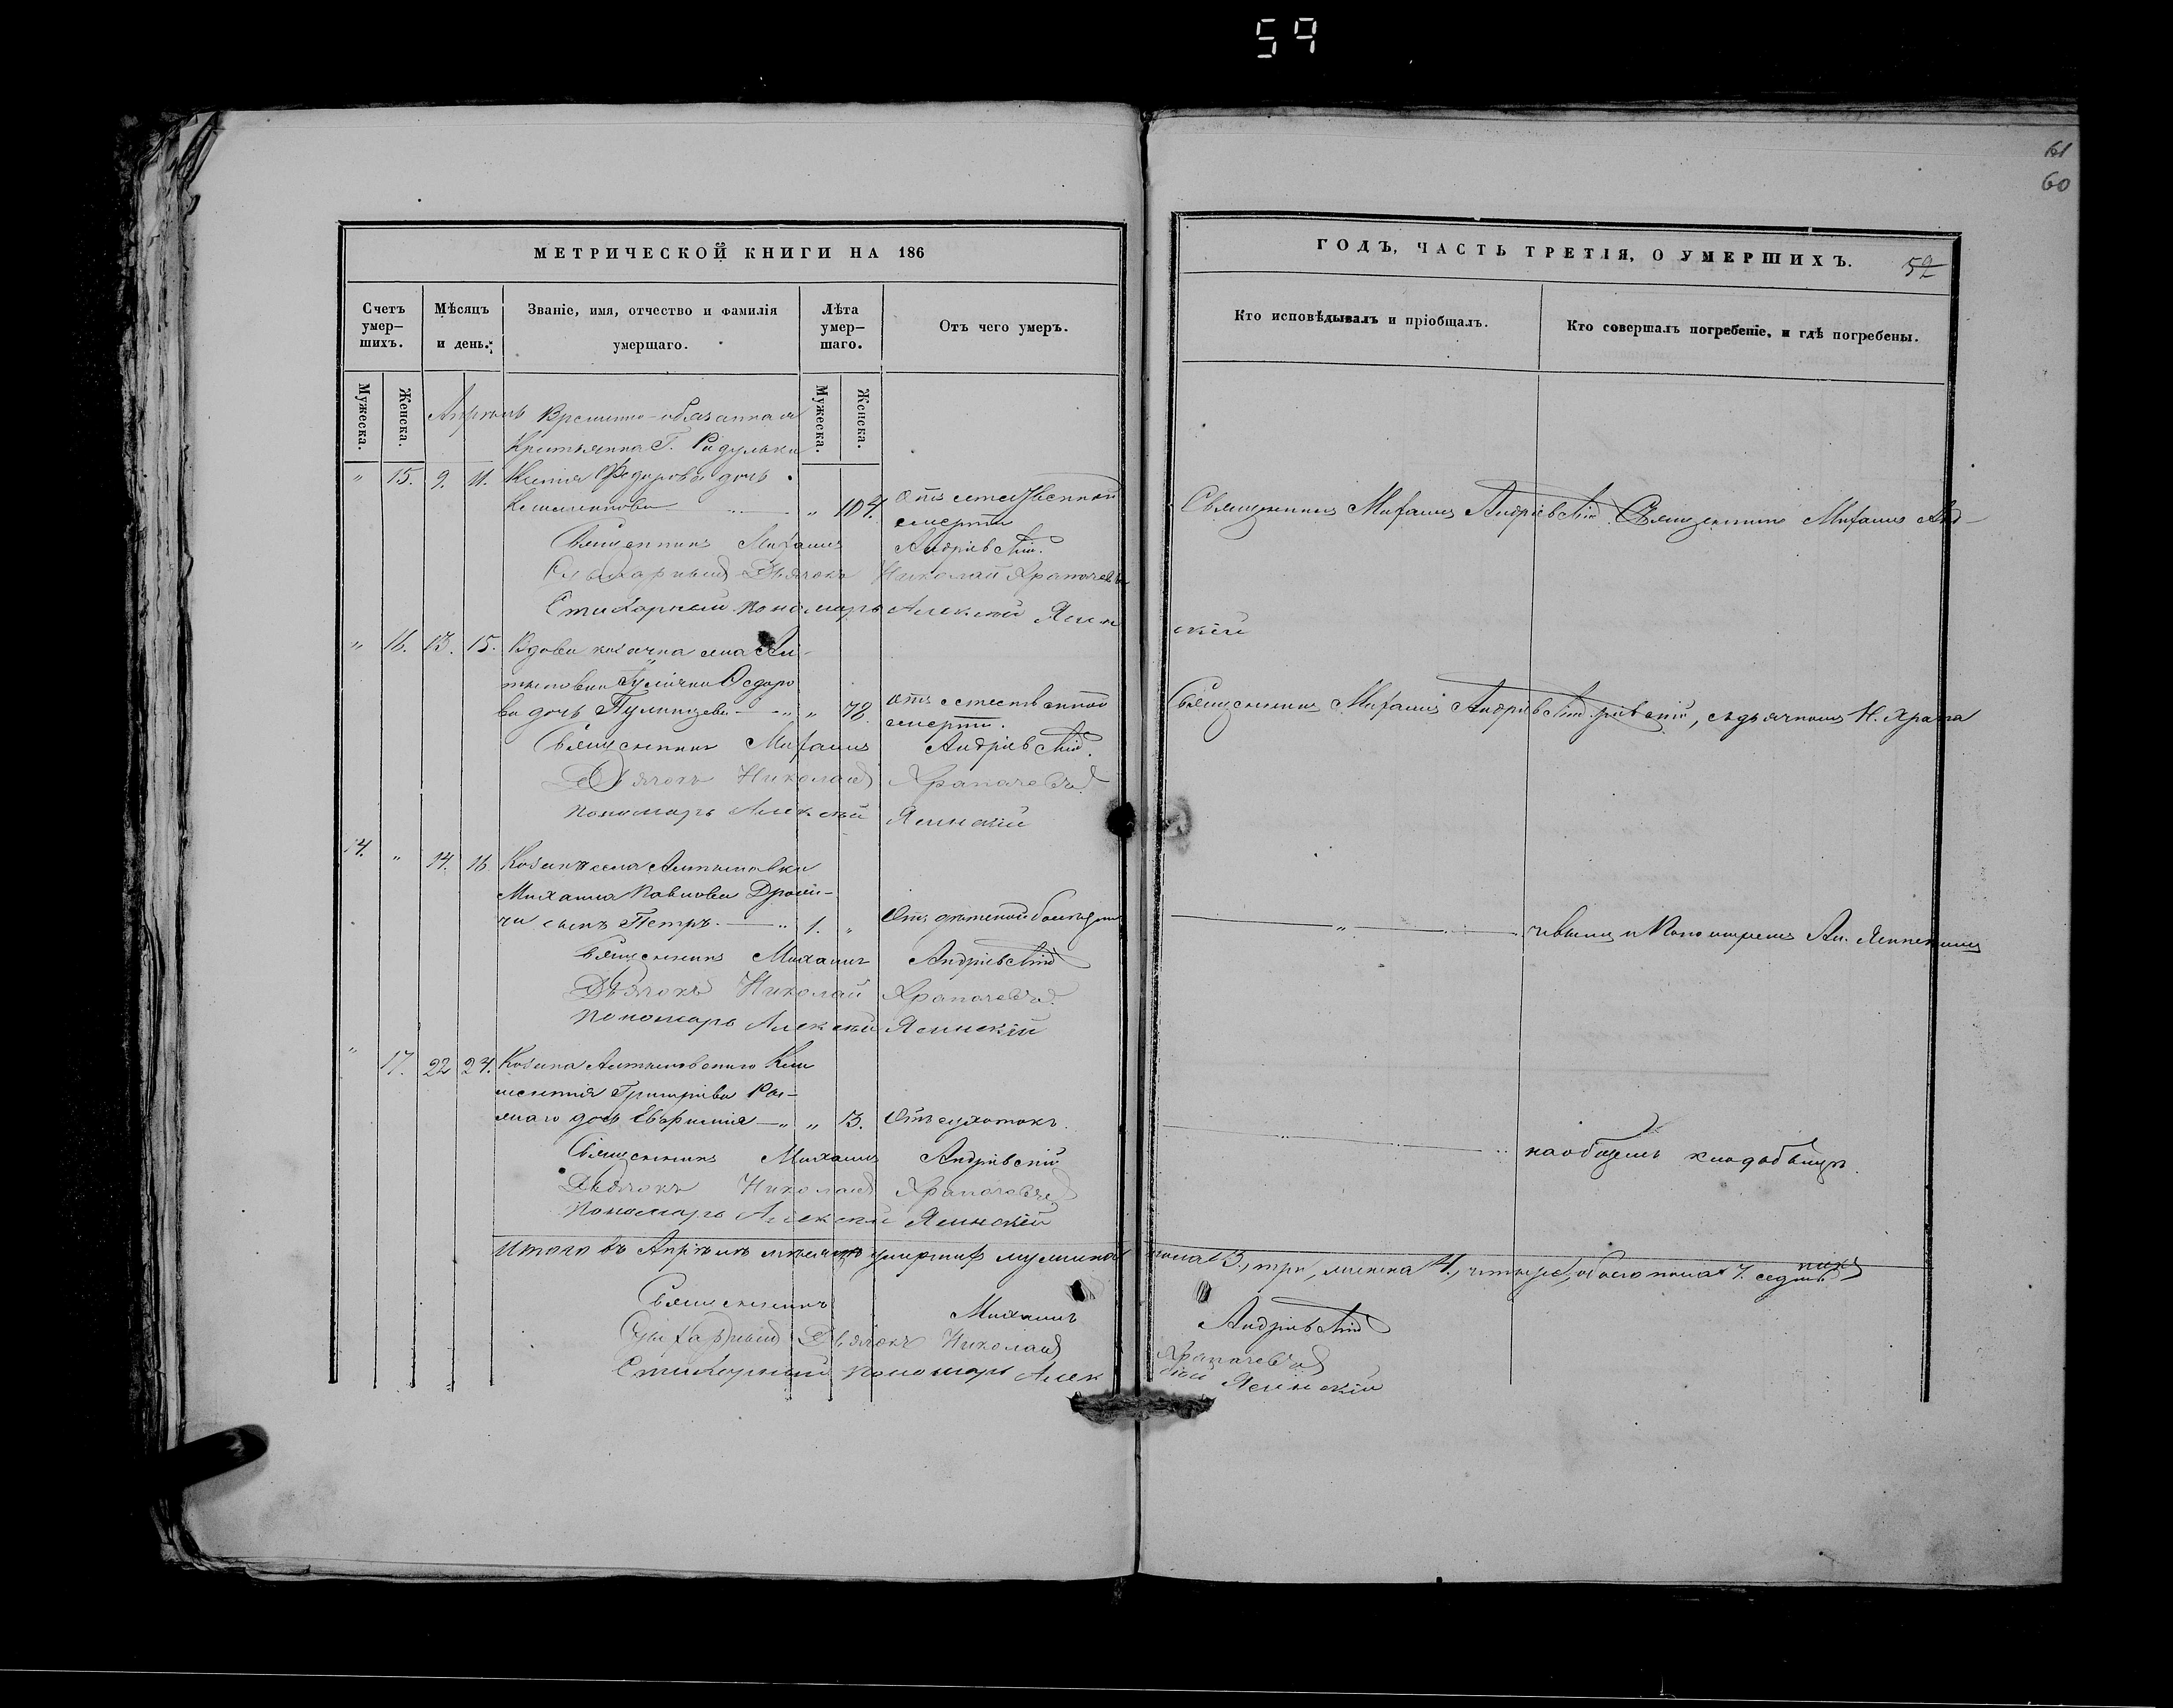 59
61
60
МЕТРИЧЕСКОЙ КНИГИ НА 186
Счетъ умер-шихъ.
Мѣсяцъ и день.
Званіе, имя, отчество и фамилія умершаго.
Лѣта умер-шаго.
Отъ чего умеръ.
Мужеска.
Женска.
Мужеска.
Женска.
Апрѣль Временно-обязанная
Крестьянка Г. Радульки
" 15. 9. 11. Ксенія Федорова дочь
" 104. отъ естественной
смерти
Священникъ Михаилъ Андріевскій.
Стихарный Дьячокъ Николай Храпачевъ
Стихарный пономарь Алексѣй Ясин
" 16. 13. 15. Вдова козачка села
Федоро
ва дочь " " 78. отъ естественной
смерти.
Священникъ Михаилъ Андріевскій.
Дьячокъ Николай
пономарь Алексѣй Ясинскій
14. " 14. 16. Козака села
Михаила Павлова
сынъ Петръ. " 1. "
Священникъ Михаилъ Андріевскій
Дьячокъ Николай
пономарь Алексѣй Ясинскій
" 17. 22 24. Козака
Григоріева
дочь Евфимія " " 3. Отъ сухотокъ.
Священникъ Михаилъ Андріевскій
Дьячокъ Николай
пономарь Алексѣй Ясинскій
Итого въ Апрѣлѣ мѣсяцѣ умершихъ мужеска
Священникъ Михаилъ
Стихарный Дьячокъ Николай
Стихарный пономарь Алек
ГОДЪ, ЧАСТЬ ТРЕТІЯ, О УМЕРШИХЪ.
52
Кто исповѣдывалъ и пріобщалъ.
Кто совершалъ погребеніе, и гдѣ погребены.
Священникъ Михаилъ Андріевскій. Священникъ Михаилъ Анд-
скій
Священникъ Михаилъ Андріевскій. ріевскій, съ дьячкомъ Н. Храпа
" чевымъ и Пономаремъ Ал. Ясинскимъ
на общемъ кладбищѣ.
пола 3., три, женска 4., четыре, обоего пола 7. седмь
Андріевскій
сѣй Ясинскій